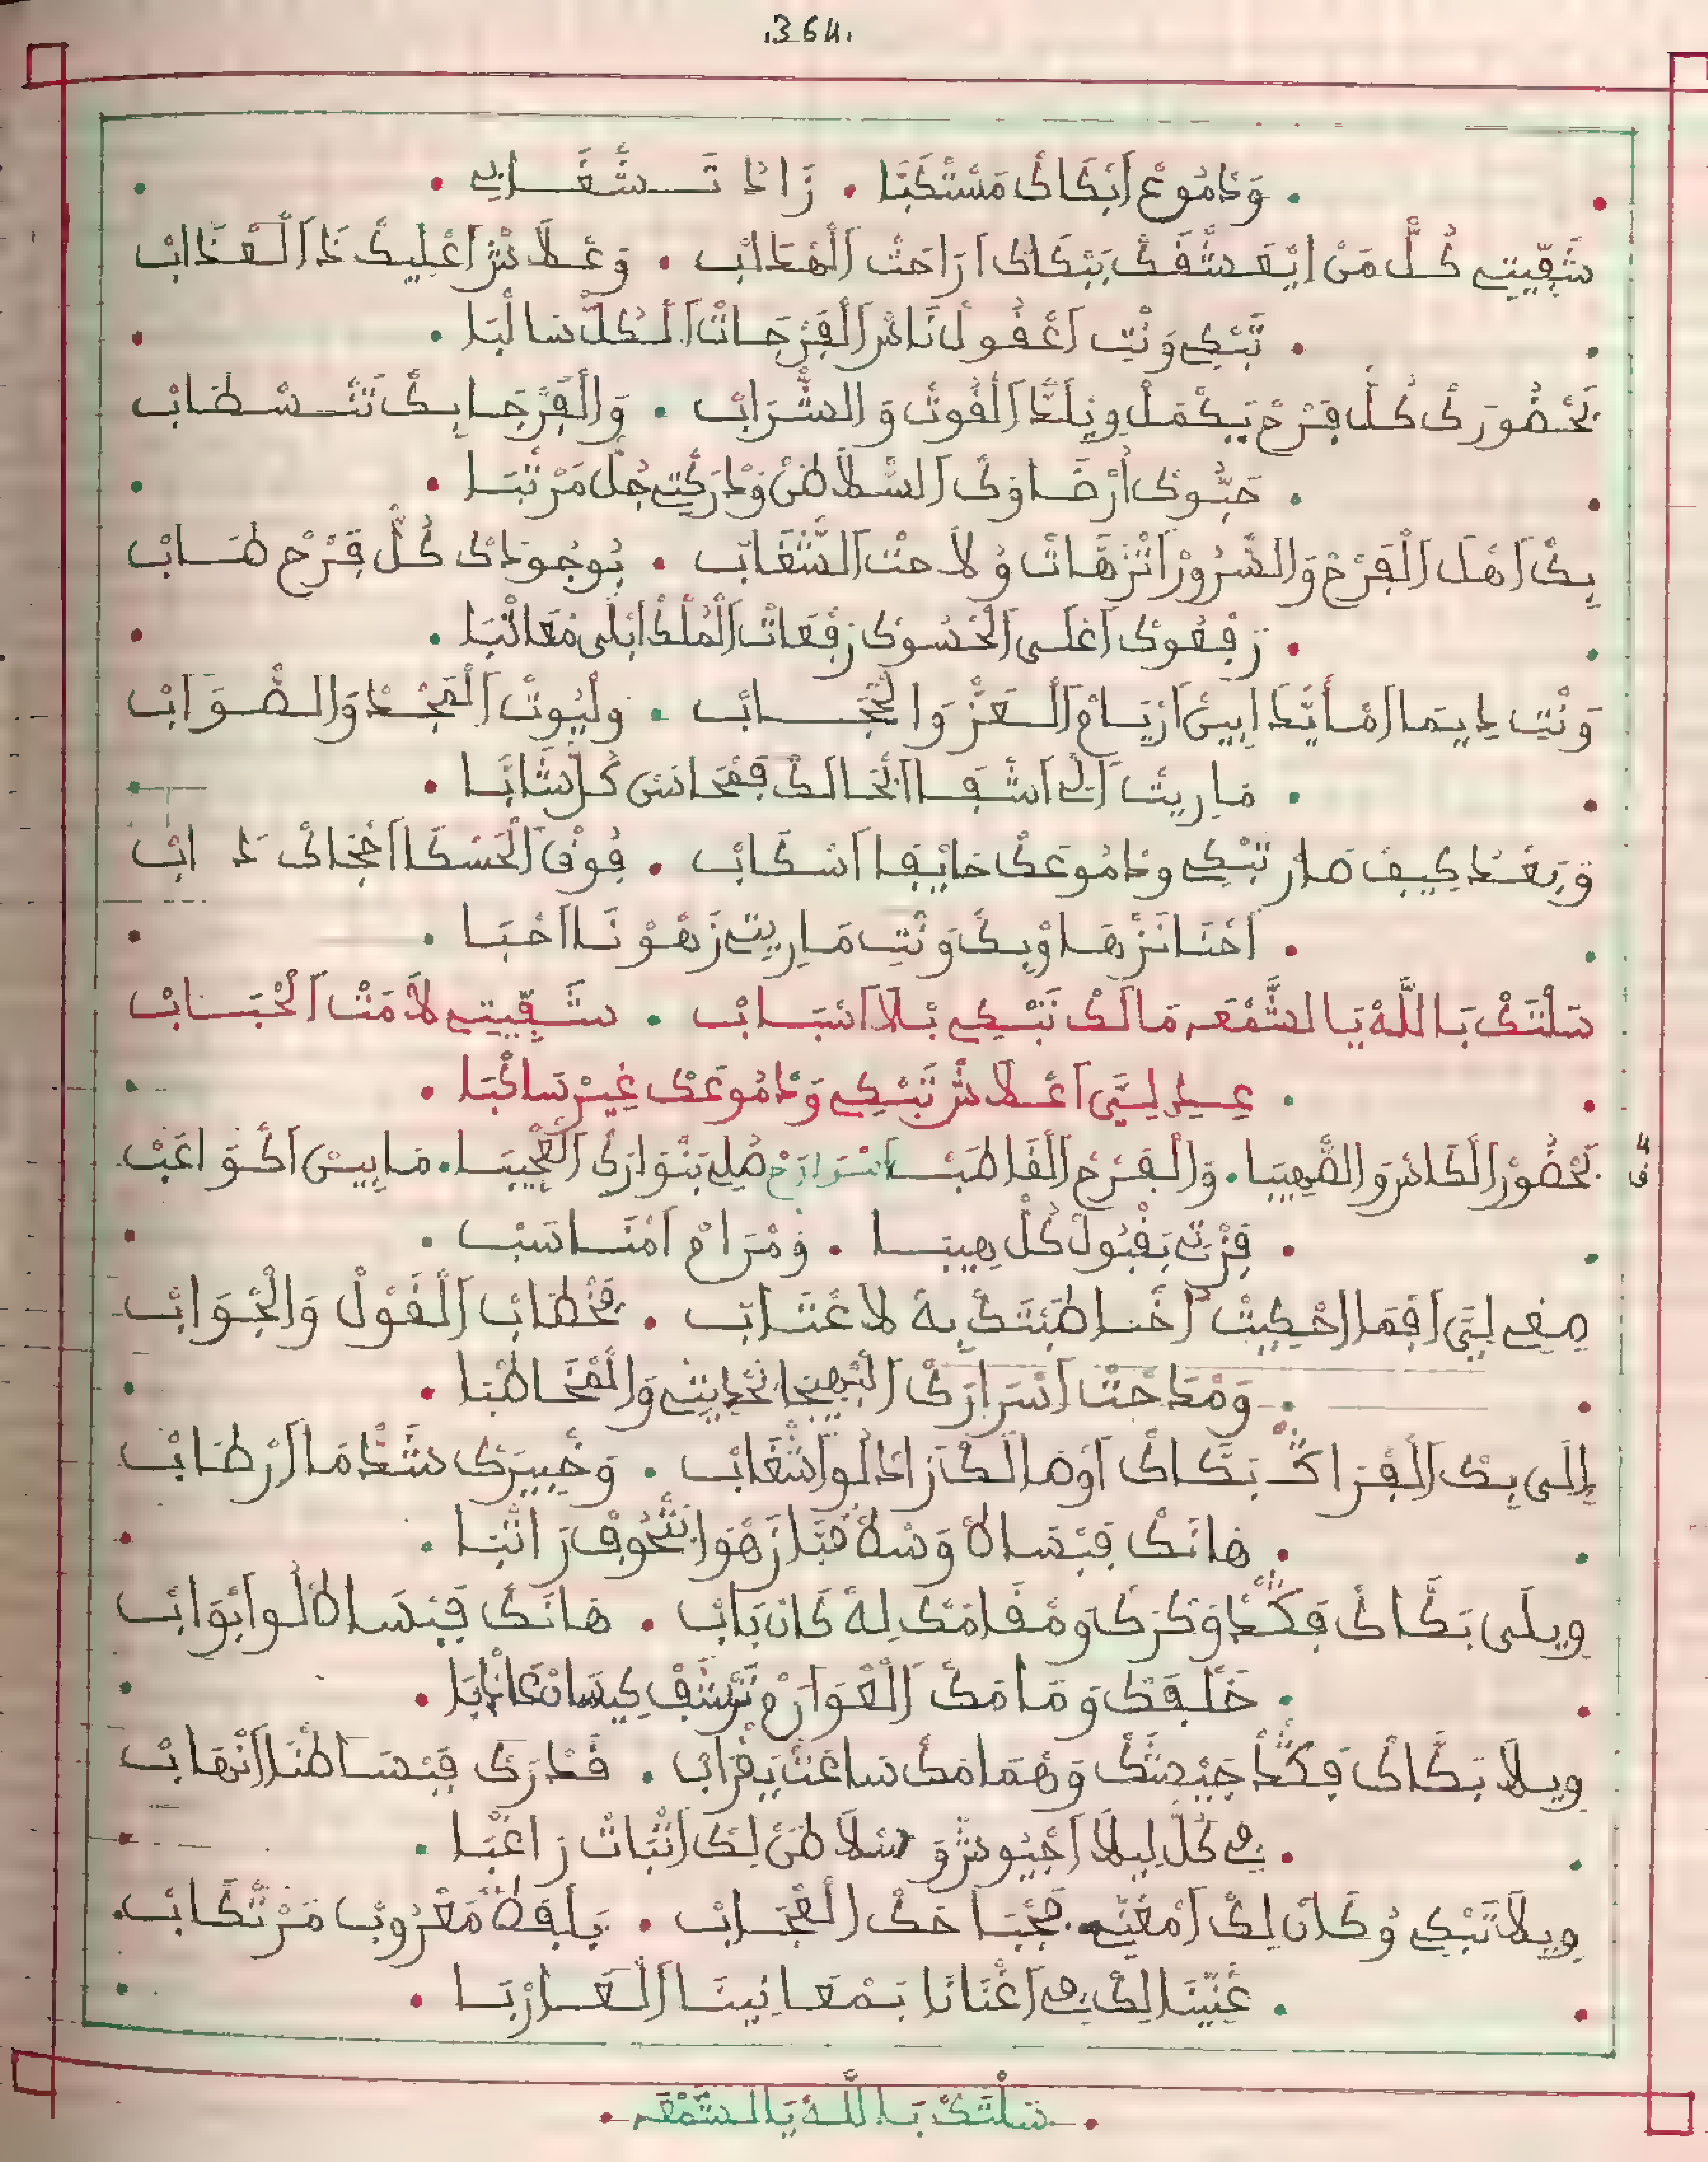 .364.
وَدْمُوعْ اَبْكَاكْ مَسْتَكْبَا . زَادْ تَـشْغَـابِي
شَقِّيتِي كُلّْ مَنْ اِيْعَشْقَكْ بَبْكَاكْ ارَاحَتْ اَلْهْدَابْ . وَعْلَاشْ اعْلِيكْ دَ اَلْعْدَابْ
تَبْكِي وَنْتِ اَعْقُولْ نَاسْ اَلْفَرْجَاتْ اَلكُلّْ سَالْبَا
بَحْضُورَكْ كُلّْ فَرْحْ يَكْمَلْ وِيلَدّْ اَلْقُوتْ وَالشّْرَابْ . وَالْفَرْجَا بِكْ تَتْـسْطَابْ
حَبُّوكْ اُرْضَاوَكْ اَلسْلَاطَنْ وَدْرَكْتِي جُلّْ مَرْتْبَا
بِكْ اَهْلْ اَلْفَرْحْ وَالسّْرُورْ اَنْزَهَاتْ وُلَاحَتْ اَلشّْغَابْ . بُوجُودَكْ كُلّْ فَرْحْ طَـابْ
رَفْعُوكْ اَعْلَى اَلْحْسُوكْ رَفْعَاتْ اَلْمُلْكْ ابْلَى مْعَاتْبَا
وَنْتِ دِيمَا اَمْأَيْدَا ابِينْ ارْيَامْ اَلْعَزّْ وَالْحْجَـابْ . وِلْيُوتْ اَلْمَجْدْ وَالصّْوَابْ
مَارِيتْ الِّي اَشْقَا ابْحَالَكْ فَمْحَاسَنْ كُلّْ شَابَّا
وَبَعْدْ كِيفْ صَارْ تَبْكِي وِدْمُوعَكْ خَايْفَا اَسْكَابْ . فُوقْ اَلْحَسْكَا اَخْدَاكْ دَابْ
اَحْنَا نَزْهَاوْ بِكْ وَنْتِ مَارِيتِي زَهْوْنَا اَحْبَا
سَلْتَكْ بَاللَّهْ يَا الشَّمْعَه مَالَكْ تَبْكِي بْلَا اَسْبَابْ . شَقِّيتِي لَامَتْ اَلْحْبَابْ
عِيدِ لِيَّ اَعْلَاشْ تَبْكِي وَدْمُوعَكْ غِيرْ سَاكْبَا
بَحْضُورْ اَلْكَاسْ وَالصّْهِيبَا . وَالْفَرْحْ اَلْقَاطَبْ اَسْرَارَحْ صُلِي بَنْوَارَكْ اَلْعْجِيبَا . مَابِينْ اَكْوَاعَبْ
فَزْتِي بَقْبُولْ كُلّْ هِيبَا . وَمْرَامْ اَمْنَاسَبْ
صِغِي لِيَّ اَفْمَا احْكِيتْ اَخْاطَبْتَكْ بِهْ لَاعْتَابْ . فَخْطَابْ اَلْقَوْلْ وَالْجْوَابْ
وَمْدَحْتْ اَسْرَارَكْ اَلْبْهِيجَا بَحْدِيثِي وَالْمْخَاطْبَا
اِلَى بِكْ اَلْفْرَاكْ بَكَّاكْ اَوْصَالَكْ زَادْلُو اَشْغَابْ . وَخْبِيرَكْ شَدّْ مَا اَرْطَابْ
هَانَكْ فَبْسَاطْ وَسْطْ قُبَّا زَهْوَا بَتْحُوفْ رَاتْبَا
وِيلَى بَكَّاكْ فَكْدْ وَكْرَكْ وَمْقَامَكْ لِهْ كَانْ بَابْ . هَانَكْ فَبْسَاطْ لُو ابْوَابْ
خَلْفَكْ وَمَامَكْ اَلْعْوَارَمْ تَرْشَفْ كِيسَانْ عَادْبَا
وِيلَا بَكَّاكْ فَكْدْ جَبْحَكْ وَهْمَامَكْ سَاعْتْ بَقْرَابْ . قَدْرَكْ فَبْسَاطْنَا اَنْهَابْ
فِي كُلّْ لِيلَا اَجْيُوشْ وَسْلَاطَنْ لِكْ اتْبَاتْ رَاغْبَا
وِيلَا تَبْكِي وُكَانْ لِكْ اَمْغَنِّي بَجْبَاحَكْ اَلْعْجَابْ . بَلْفَظْ مَعْرُوبْ مَرْتْكَابْ
غَنِّينَا لِكْ فِي اَغْنَانَا بَمْعَانِينَا اَلْعَارْبَا
سَلْتَكْ بَاللَّهْ يَالشَّمْعَه